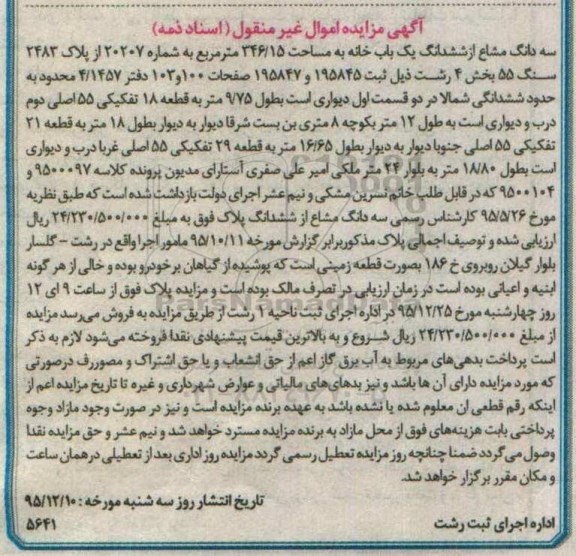 آگهی مزایده اموال غیر منقول (اسناد ذمه)
سه دانگ مشاع ازششدانگ یک باب خانه به مساحت ۳۴۶/۱۵ مترمربع به شماره ۲۰۲۰۷ از پلاک ۲۴۸۳
سنگ ۵۵ بخش ۴ رشت ذیل ثبت ۱۹۵۸۴۵ و ۱۹۵۸۴۷ صفحات ۱۰۰و۱۰۳ دفتر ۴/۱۴۵۷ محدود به
حدود ششدانگی شمالا در دو قسمت اول دیواری است بطول ۹/۷۵ متر به قطعه ۱۸ تفکیکی ۵۵ اصلی دوم
درب و دیواری است به طول ۱۲ متر بکوچه ۸ متری بن بست شرقا دیوار به دیوار بطول ۱۸ متر به قطعه ۲۱
تفکیکی ۵۵ اصلی جنوبا دیوار به دیوار بطول ۱۶/۶۵ متر به قطعه ۲۹ تفکیکی ۵۵ اصلی غربا درب و دیواری
است بطول ۱۸/۸۰ متر به بلوار ۲۴ متر ملکی امیر علی صفری آستارای مدیون پرونده کلاسه ۹۵۰۰۰۹۷ و
۹۵۰۰۱۰۴ که در قابل طلب خانم نسرین مشکی و نیم عشر اجرای دولت بازداشت شده است که طبق نظریه
مورخ ۹۵/۵/۲۶ کارشناس رسمی سه دانگ مشاع از ششدانگ پلاک فوق به مبلغ ۲۴/۲۳۰/۵۰۰/۰۰۰ ریال
ارزیابی شده و توصیف اجمالی پلاک مذکوربرابر گزارش مورخه ۹۵/۱۰/۱۱ مامور اجرا واقع در رشت - گلسار
بلوار گیلان روبروی خ ۱۸۶ بصورت قطعه زمینی است که پوشیده از گیاهان برخودرو بوده و خالی از هر گونه
ابنیه و اعیانی بوده است در زمان ارزیابی در تصرف مالک بوده است و مزایده پلاک فوق از ساعت ۹ الی ۱۲
روز چهارشنبه مورخ ۹۵/۱۲/۲۵ در اداره اجرای ثبت ناحیه ۱ رشت از طریق مزایده به فروش می‌رسد مزایده
از مبلغ ۲۴/۲۳۰/۵۰۰/۰۰۰ ریال شروع و به بالاترین قیمت پیشنهادی نقدا فروخته می‌شود لازم به ذکر
است پرداخت بدهی‌های مربوط به آب برق گاز اعم از حق انشعاب و یا حق اشتراک و مصوررف درصورتی
که مورد مزایده دارای آن ها باشد و نیز بدهای‌های مالیاتی و عوارض شهرداری و غیره تا تاریخ مزایده اعم از
اینکه رقم قطعی ان معلوم شده یا نشده باشد به عهده برنده مزایده است و نیز در صورت وجود مازاد وجوه
پرداختی بابت هزینه‌های فوق از محل مازاد به برنده مزایده مسترد خواهد شد و نیم عشر و حق مزایده نقدا
وصول می‌گردد ضمنا چنانچه روز مزایده تعطیل رسمی گردد مزایده روز اداری بعد از تعطیلی درهمان ساعت
و مکان مقرر برگزار خواهد شد.
تاریخ انتشار روز سه شنبه مورخه : ۹۵/۱۲/۱۰
اداره اجرای ثبت رشت ۵۶۴۱